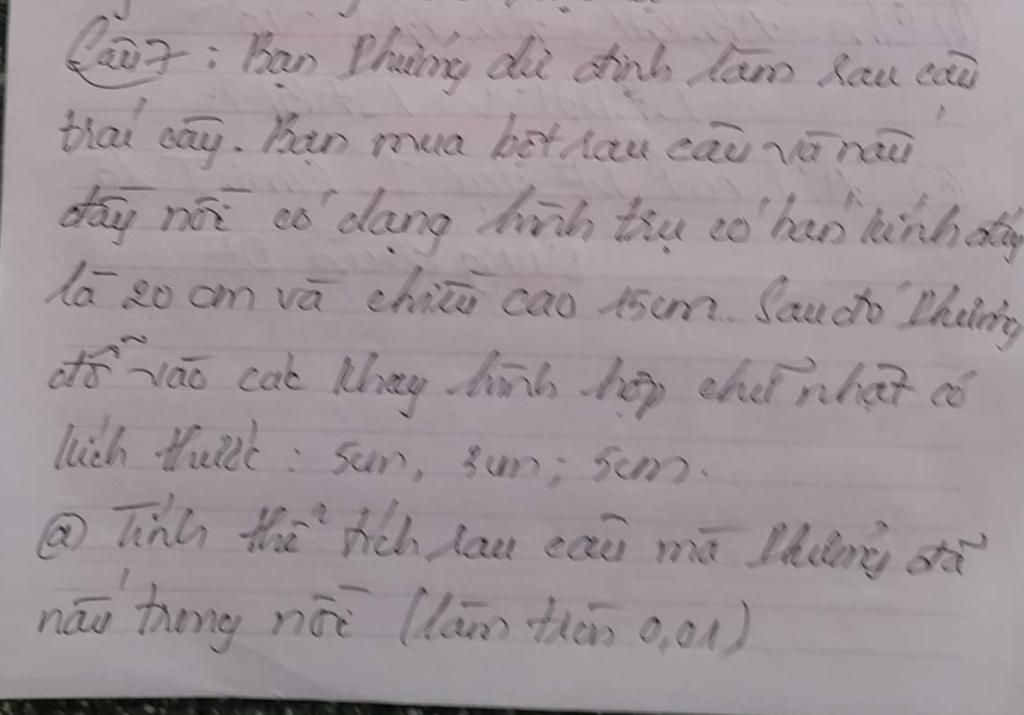 Câu 7: Bạn Phương dự định làm rau câu
trái cây. Bạn mua bột rau câu và nấu
đầy nồi có dạng hình trụ có bán kính đáy
là 20 cm và chiều cao 15cm. Sau đó Phương
đổ vào các khay hình hộp chữ nhật có
kích thước: 5cm, 3cm; 5cm.
a) Tính thể tích rau câu mà Phương đã
nấu trong nồi (làm tròn 0,01)